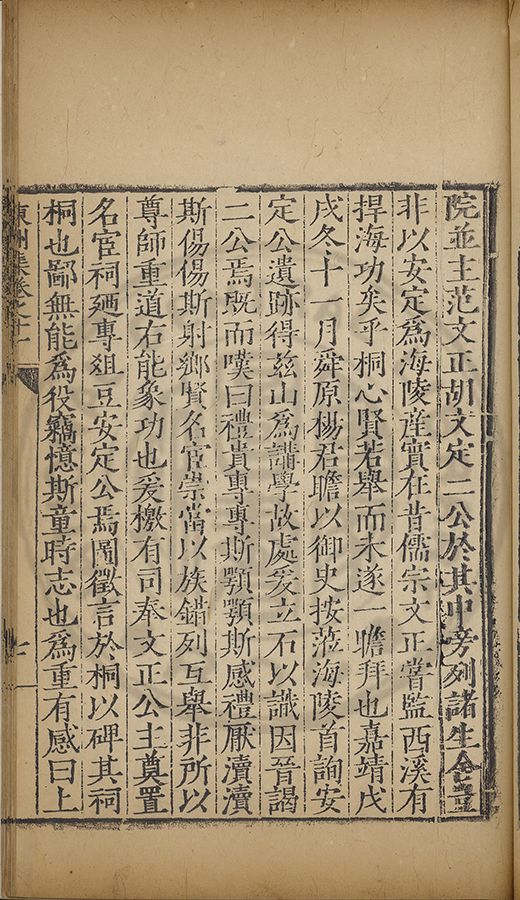 院並主范文正胡文定二公於其中旁列諸生舍豈
非以安定爲海陵産實在昔儒宗文正嘗監西溪有
捍海功矣乎桐心賢若舉而未遂一瞻拜也嘉靖戊
戌冬十一月舜原楊君瞻以御史按蒞海陵首詢安
定公遺跡得玆山爲講學故處爰立石以識因晉謁
二公焉旣而嘆曰禮貴專專斯顒顒斯感禮厭瀆瀆
斯傷傷斯射鄉賢名宦崇當以族錯列互舉非所以
尊師重道右能象功也爰檄有司奉文正公主奠置
名宦祠廼專俎豆安定公焉聞徵言於桐以碑其祠
桐也鄙無能爲役竊憶斯童時志也爲重有感曰上
東州集卷之十一
七